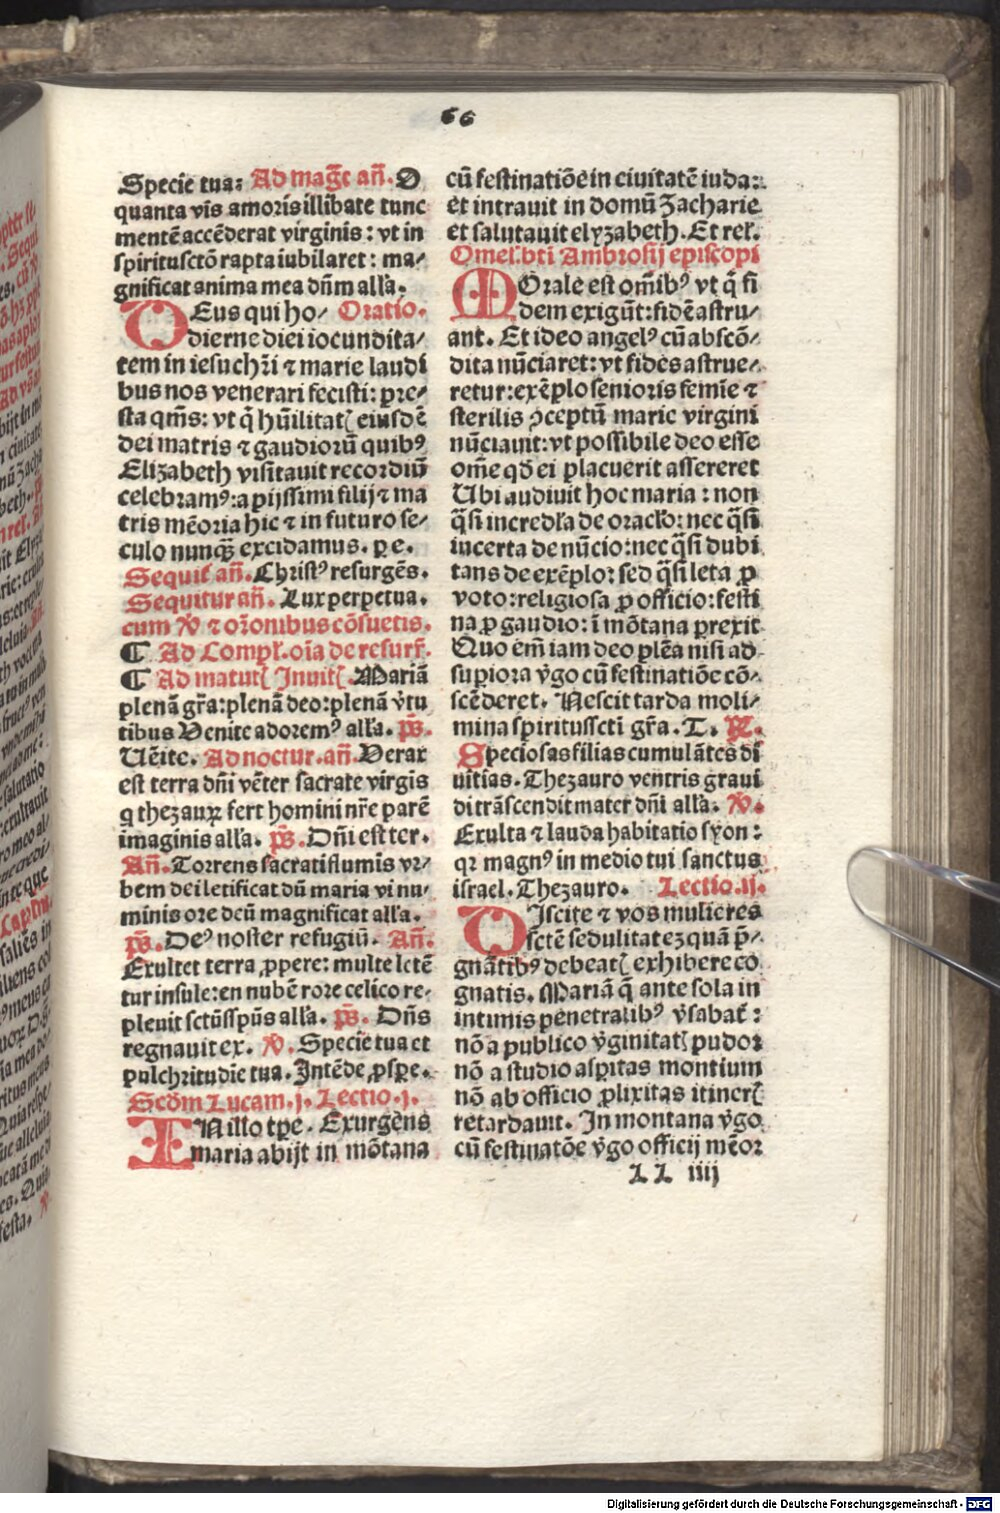 66
Specie tua: Ad mag̃t añ. O
quanta vis amoris illibate tunc
mentē accēderat virginis: vt in
spiritusctō rapta iubilaret: ma⸗
gnificat anima mea dn̄m all̓a.
DEus qui ho⸗ Oratio.
dierne diei iocundita⸗
tem in iesu chr̄i ⁊ marie laudi
bus nos venerari fecisti: pre⸗
sta qm̄s: vt q̄ hūilitatꝭ eiusdē
dei matris ⁊ gaudiorū quibꝰ
Elizabeth visitauit recordiū
celebramꝰ: a pijssimi filij ⁊ ma
tris mēoria hic ⁊ in futuro se⸗
culo nunqꝫ excidamus. p e.
Sequit̓ añ. Christꝰ resurgēs.
Sequitur añ. Lux perpetua.
cum ꝟ ⁊ or̄onibus cōsuetis.
¶ Ad Compl̓. oīa de resurr̄.
¶ Ad matutꝭ Inuitꝭ. Mariā
plenā gr̄a: plenā deo: plenā v̓tu
tibus Venite adoremꝰ all̓a. p̄s.
Uēite. Ad noctur. añ. Verax
est terra dn̄i vēter sacrate virgis
q thezauꝝ fert homini nr̄e parē
imaginis all̓a. p̄s. Dn̄i est ter.
Añ. Torrens sacratissumis vr⸗
bem dei letificat dū maria vi nu⸗
minis ore dcū magnificat all̓a.
p̄s. Deꝰ noster refugiū. Añ.
Exultet terra ꝓpere: multe letē
tur insule: en nubē rore celico re⸗
pleuit sctūs sp̄us all̓a. p̄s. Dn̄s
regnauit ex. ꝟ. Specie tua et
pulchritudie tua. Intēde ꝓspe.
Scd̄m Lucam. j. Lectio. j.
IN illo tp̄e. Exurgēns
maria abijt in mōtana
cū festinatiōe in ciuitatē iuda:
et intrauit in domū Zacharie
et salutauit elyzabeth. Et rel̓.
Omel̓. bt̄i Ambrosij episcopi
MOrale est om̄ibꝰ vt q̄ fi
dem exigūt: fidē astru⸗
ant. Et ideo angelꝰ cū abscō⸗
dita nūciaret: vt fides astrue⸗
retur: exēplo senioris femīe ⁊
sterilis ꝯceptū marie virgini
nūciauit: vt possibile deo esse
om̄e qd̄ ei placuerit assereret
Ubi audiuit hoc maria: non
q̄si incredl̓a de oracl̓o: nec q̄si
incerta de nūcio: nec q̄si dubi
tans de exēplo: sed q̄si leta ꝓ
voto: religiosa ꝓ officio: festi
na ꝓ gaudio: ī mōtana prexit
Quo em̄ iam deo plēa nisi ad
supiora v̓go cū festinatiōe cō⸗
scēderet. Nescit tarda moli⸗
mina spiritusscti gr̄a. T. ℞.
Speciosas filias cumulātes di
uitias. Thezauro ventris graui
di trāscendit mater dn̄i all̓a. ꝟ.
Exulta ⁊ lauda habitatio syon:
qꝛ magnꝰ in medio tui sanctus
israel. Thezauro. Lectio. ij.
DIscite ⁊ vos mulieres
sctē sedulitatez quā p̄⸗
gnātibꝰ debeatꝭ exhibere co
gnatis. Mariā q̄ ante sola in
intimis penetralibꝰ v̓sabat̓:
nō a publico v̓ginitatꝭ pudor
nō a studio aspitas montium
nō ab officio ꝓlixitas itinerꝭ
retardauit. In montana v̓go
cū festinatōe v̓go officij mēor
LL iiij
Digitalisierung gefördert durch die Deutsche Forschungsgemeinschaft - DFG